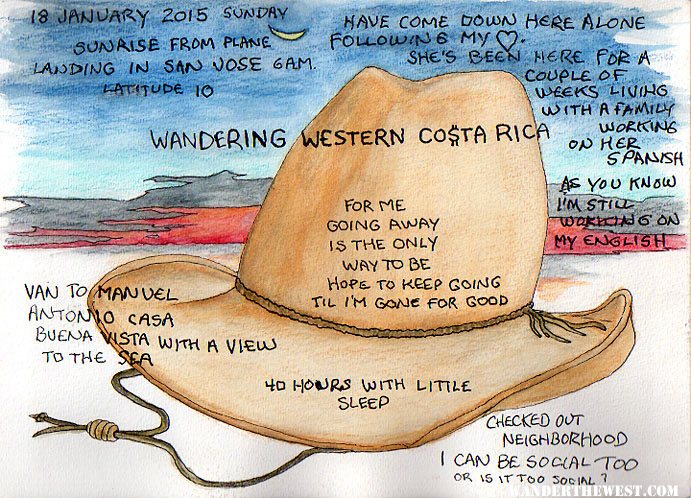 18 JANUARY 2015 SUNDAY
SUNRISE FROM PLANE
LANDING IN SAN JOSE 6AM.
LATITUDE 10
HAVE COME DOWN HERE ALONE
FOLLOWING MY ♡.
SHE'S BEEN HERE FOR A
COUPLE OF
WEEKS LIVING
WITH A FAMILY
WORKING
ON HER
SPANISH
AS YOU KNOW
I'M STILL
WORKING ON
MY ENGLISH
WANDERING WESTERN CO$TA RICA
FOR ME
GOING AWAY
IS THE ONLY
WAY TO BE
HOPE TO KEEP GOING
TIL I'M GONE FOR GOOD
VAN TO MANUEL
ANTONIO CASA
BUENA VISTA WITH A VIEW
TO THE SEA
40 HOURS WITH LITTLE
SLEEP
CHECKED OUT
NEIGHBORHOOD
I CAN BE SOCIAL TOO
OR IS IT TOO SOCIAL?
WANDERTHEWEST.COM